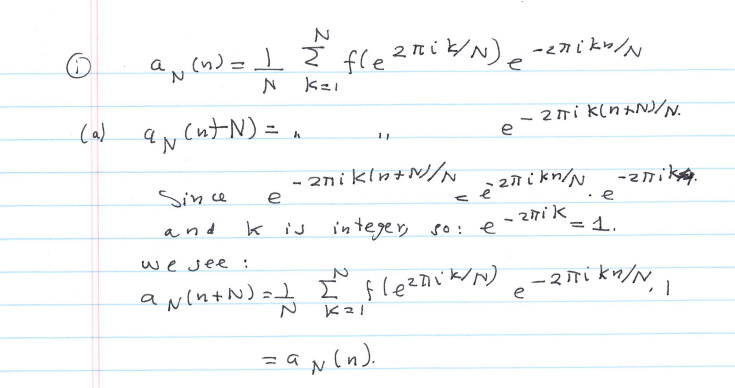 ① a_N(n) = 1/N Σ_{k=1}^{N} f(e^{2πik/N}) e^{-2πikn/N}
(a) a_N(n+N) = " " e^{-2πik(n+N)/N}.
Since e^{-2πik(n+N)/N} = e^{-2πikn/N} · e^{-2πik}.
and k is integer, so: e^{-2πik} = 1.
we see:
a_N(n+N) = 1/N Σ_{k=1}^{N} f(e^{2πik/N}) e^{-2πikn/N} . 1
= a_N(n).